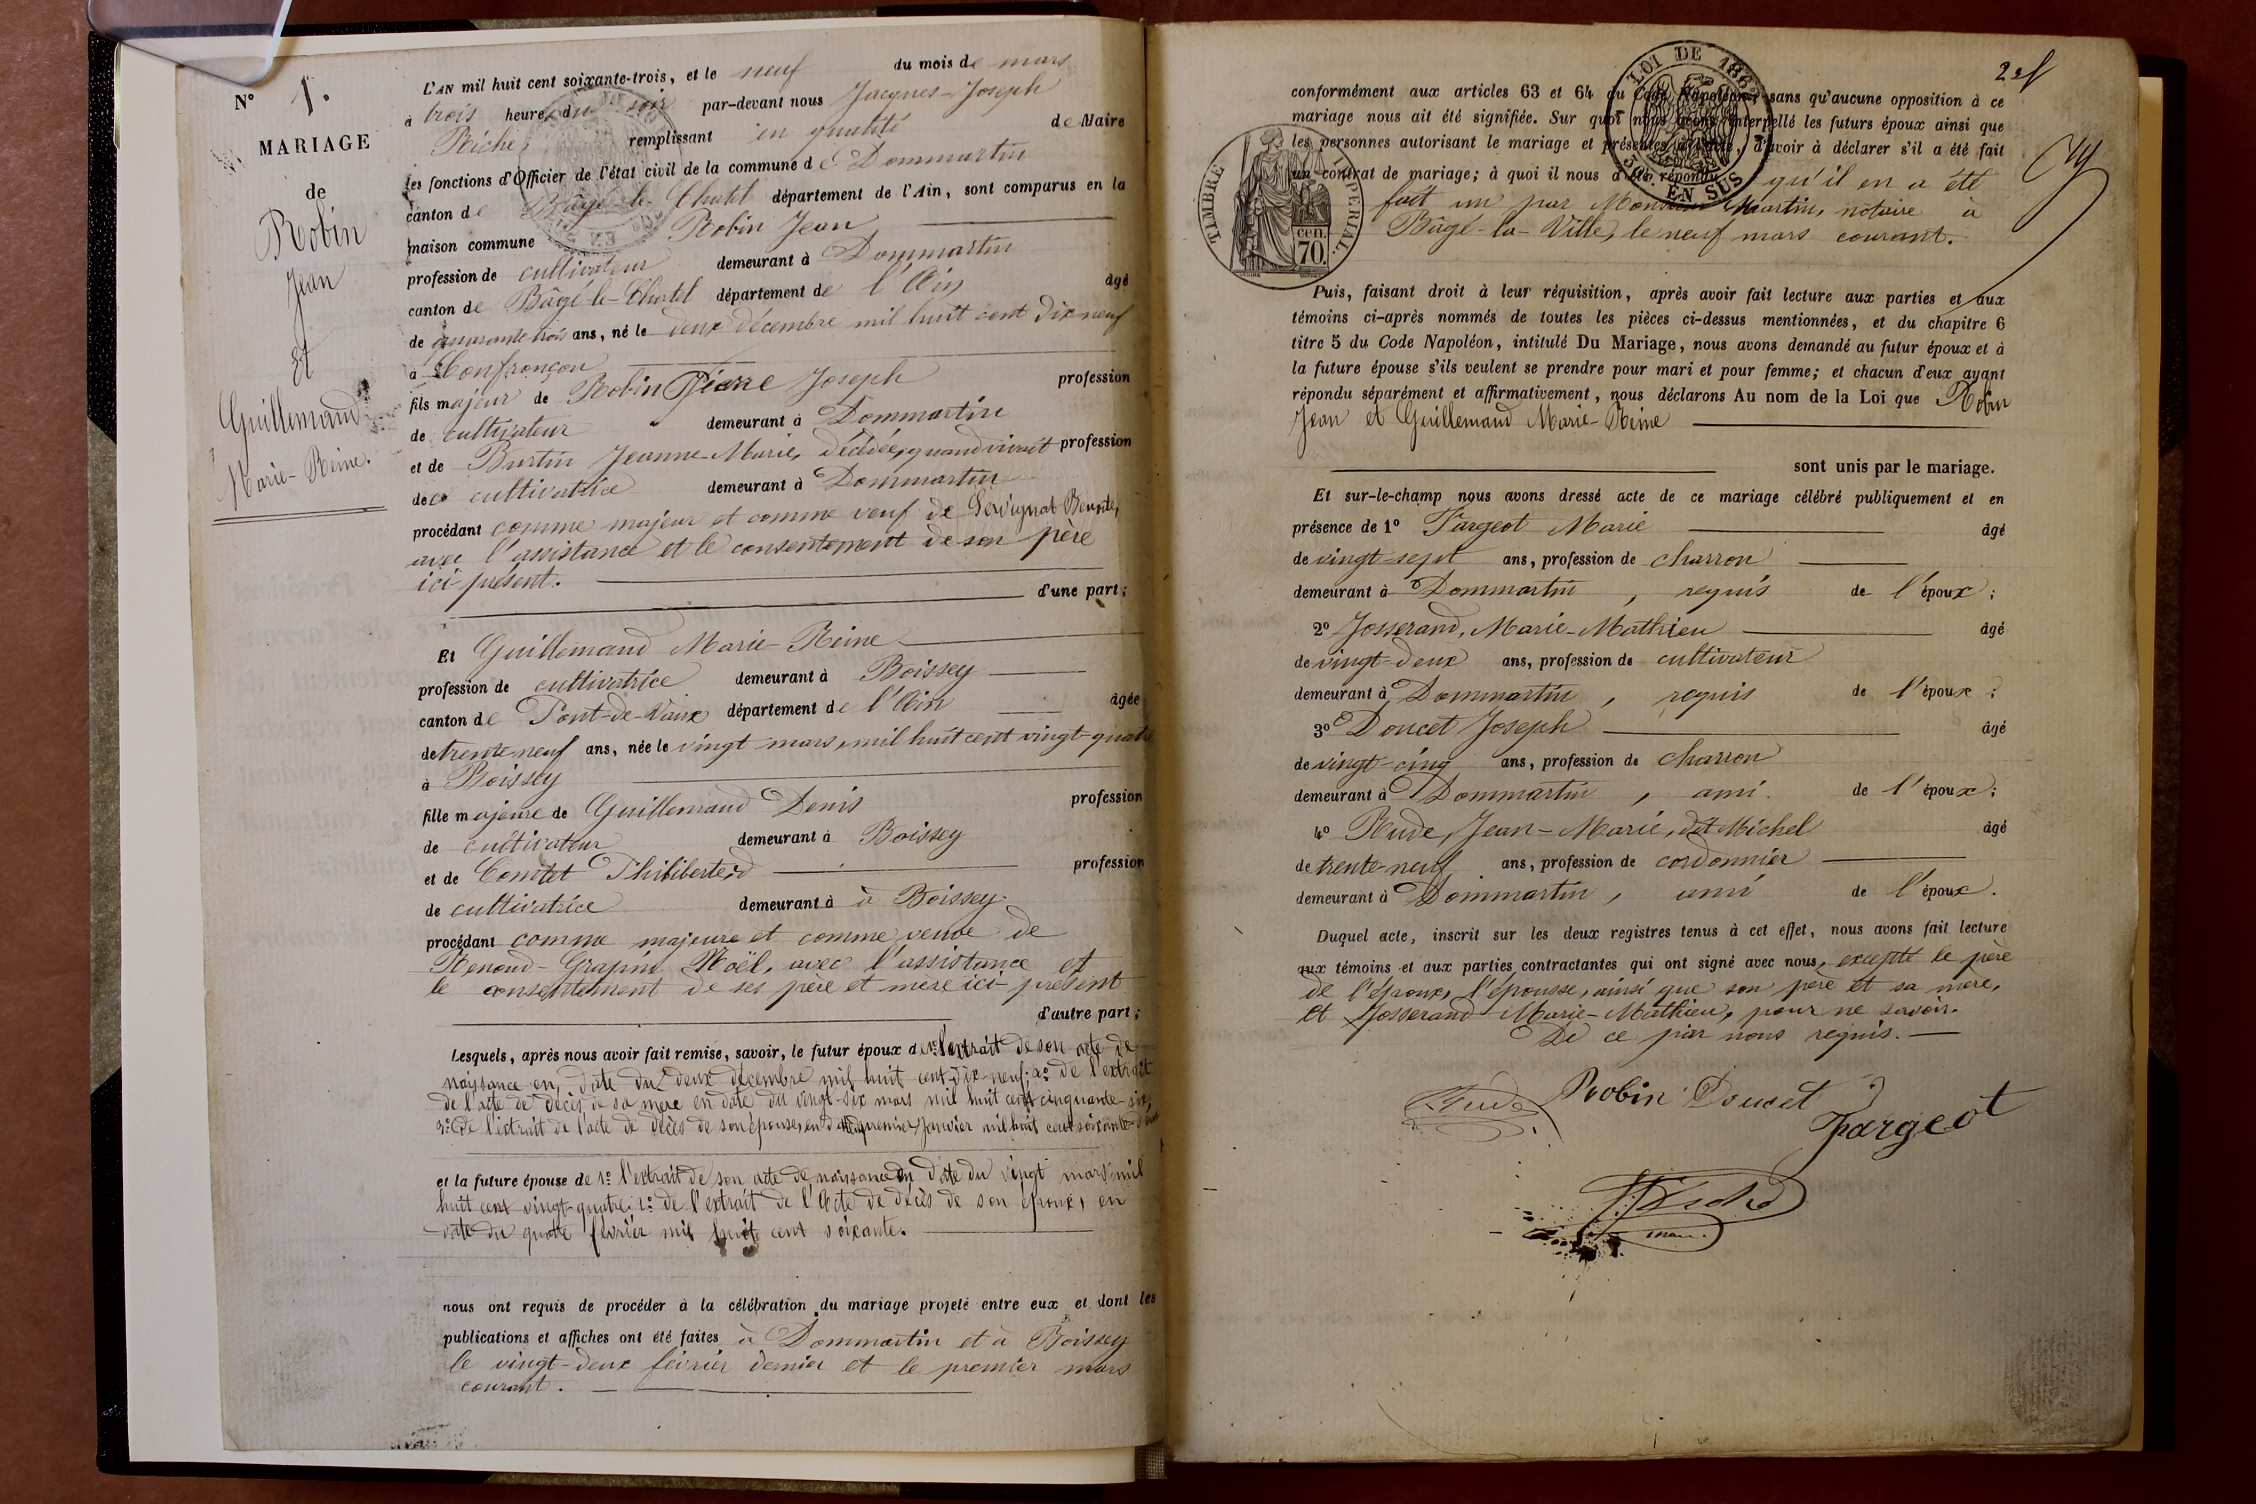 N° 1.
MARIAGE
de
Robin
Jean
Et
Guillemaud
Marie-Reine.
L'AN mil huit cent soixante-trois, et le neuf du mois de mars
à trois heure du soir par-devant nous Jacques-Joseph
Riche, remplissant en qualité de Maire
les fonctions d'Officier de l'état civil de la commune de Dommartin
canton de Bâgé-le-Chatel département de l'Ain, sont comparus en la
maison commune Robin Jean
profession de cultivateur demeurant à Dommartin
canton de Bâgé-le-Chatel département de l'Ain âgé
de quarante trois ans, né le deux décembre mil huit cent dix neuf
à Confrançon
fils majeur de Robin Pierre Joseph profession
de cultivateur demeurant à Dommartin
et de Burtin Jeanne-Marie, décédée, quand vivait profession
de cultivatrice demeurant à Dommartin
procédant comme majeur et comme veuf de Servignat Benoite,
avec l'assistance et le consentement de son père
ici présent.
d'une part;
Et Guillemaud Marie-Reine
profession de cultivatrice demeurant à Boissey
canton de Pont-de-Vaux département de l'Ain âgée
de trente neuf ans, née le vingt mars, mil huit cent vingt-quatre
à Boissey
fille majeure de Guillemaud Denis profession
de cultivateur demeurant à Boissey
et de Comtet Philiberte profession
de cultivatrice demeurant à à Boissey
procédant comme majeure et comme veuve de
Renoud-Grapin Noël, avec l'assistance et
le consentement de ses père et mère ici présent
d'autre part;
Lesquels, après nous avoir fait remise, savoir, le futur époux de 1° l'extrait de son acte de
naissance en date du deux décembre mil huit cent dix-neuf; 2° de l'extrait
de l'acte de décès de sa mère en date du vingt-six mars mil huit cent cinquante-six,
3° de l'extrait de l'acte de décès de son épouse, en date du premier janvier mil huit cent soixante
et la future épouse de 1° l'extrait de son acte de naissance en date du vingt mars mil
huit cent vingt-quatre; 2° de l'extrait de l'acte de décès de son époux, en
date du quatre février mil huit cent soixante.
nous ont requis de procéder à la célébration du mariage projeté entre eux et dont les
publications et affiches ont été faites à Dommartin et à Boissey
le vingt-deux février dernier et le premier mars
courant.
LOI DE 186
EN SUS
TIMBRE IMPERIAL.
cen.
70.
conformément aux articles 63 et 64 du Code Napoléon, sans qu'aucune opposition à ce
mariage nous ait été signifiée. Sur quoi nous avons interpellé les futurs époux ainsi que
les personnes autorisant le mariage et présentes à l'acte, d'avoir à déclarer s'il a été fait
un contrat de mariage; à quoi il nous a été répondu qu'il en a été
fait un par Monsieur Martin, notaire à
Bâgé-la-Ville, le neuf mars courant.
Puis, faisant droit à leur réquisition, après avoir fait lecture aux parties et aux
témoins ci-après nommés de toutes les pièces ci-dessus mentionnées, et du chapitre 6
titre 5 du Code Napoléon, intitulé Du Mariage, nous avons demandé au futur époux et à
la future épouse s'ils veulent se prendre pour mari et pour femme; et chacun d'eux ayant
répondu séparément et affirmativement, nous déclarons Au nom de la Loi que Robin
Jean et Guillemaud Marie-Reine
sont unis par le mariage.
Et sur-le-champ nous avons dressé acte de ce mariage célébré publiquement et en
présence de 1° Fargeot Marie âgé
de vingt-sept ans, profession de charron
demeurant à Dommartin, requis de l'époux;
2° Josserand, Marie-Mathieu âgé
de vingt-deux ans, profession de cultivateur
demeurant à Dommartin, requis de l'époux;
3° Doucet Joseph âgé
de vingt-cinq ans, profession de charron
demeurant à Dommartin, ami de l'époux;
4° Rude, Jean-Marie, dit Michel âgé
de trente-neuf ans, profession de cordonnier
demeurant à Dommartin, ami de l'époux.
Duquel acte, inscrit sur les deux registres tenus à cet effet, nous avons fait lecture
aux témoins et aux parties contractantes qui ont signé avec nous, excepté le père
de l'époux, l'épousse, ainsi que son père et sa mère,
et Josserand Marie-Mathieu, pour ne savoir.
De ce par nous requis.
Rude Robin Doucet J
Fargeot
J. Riche
maire